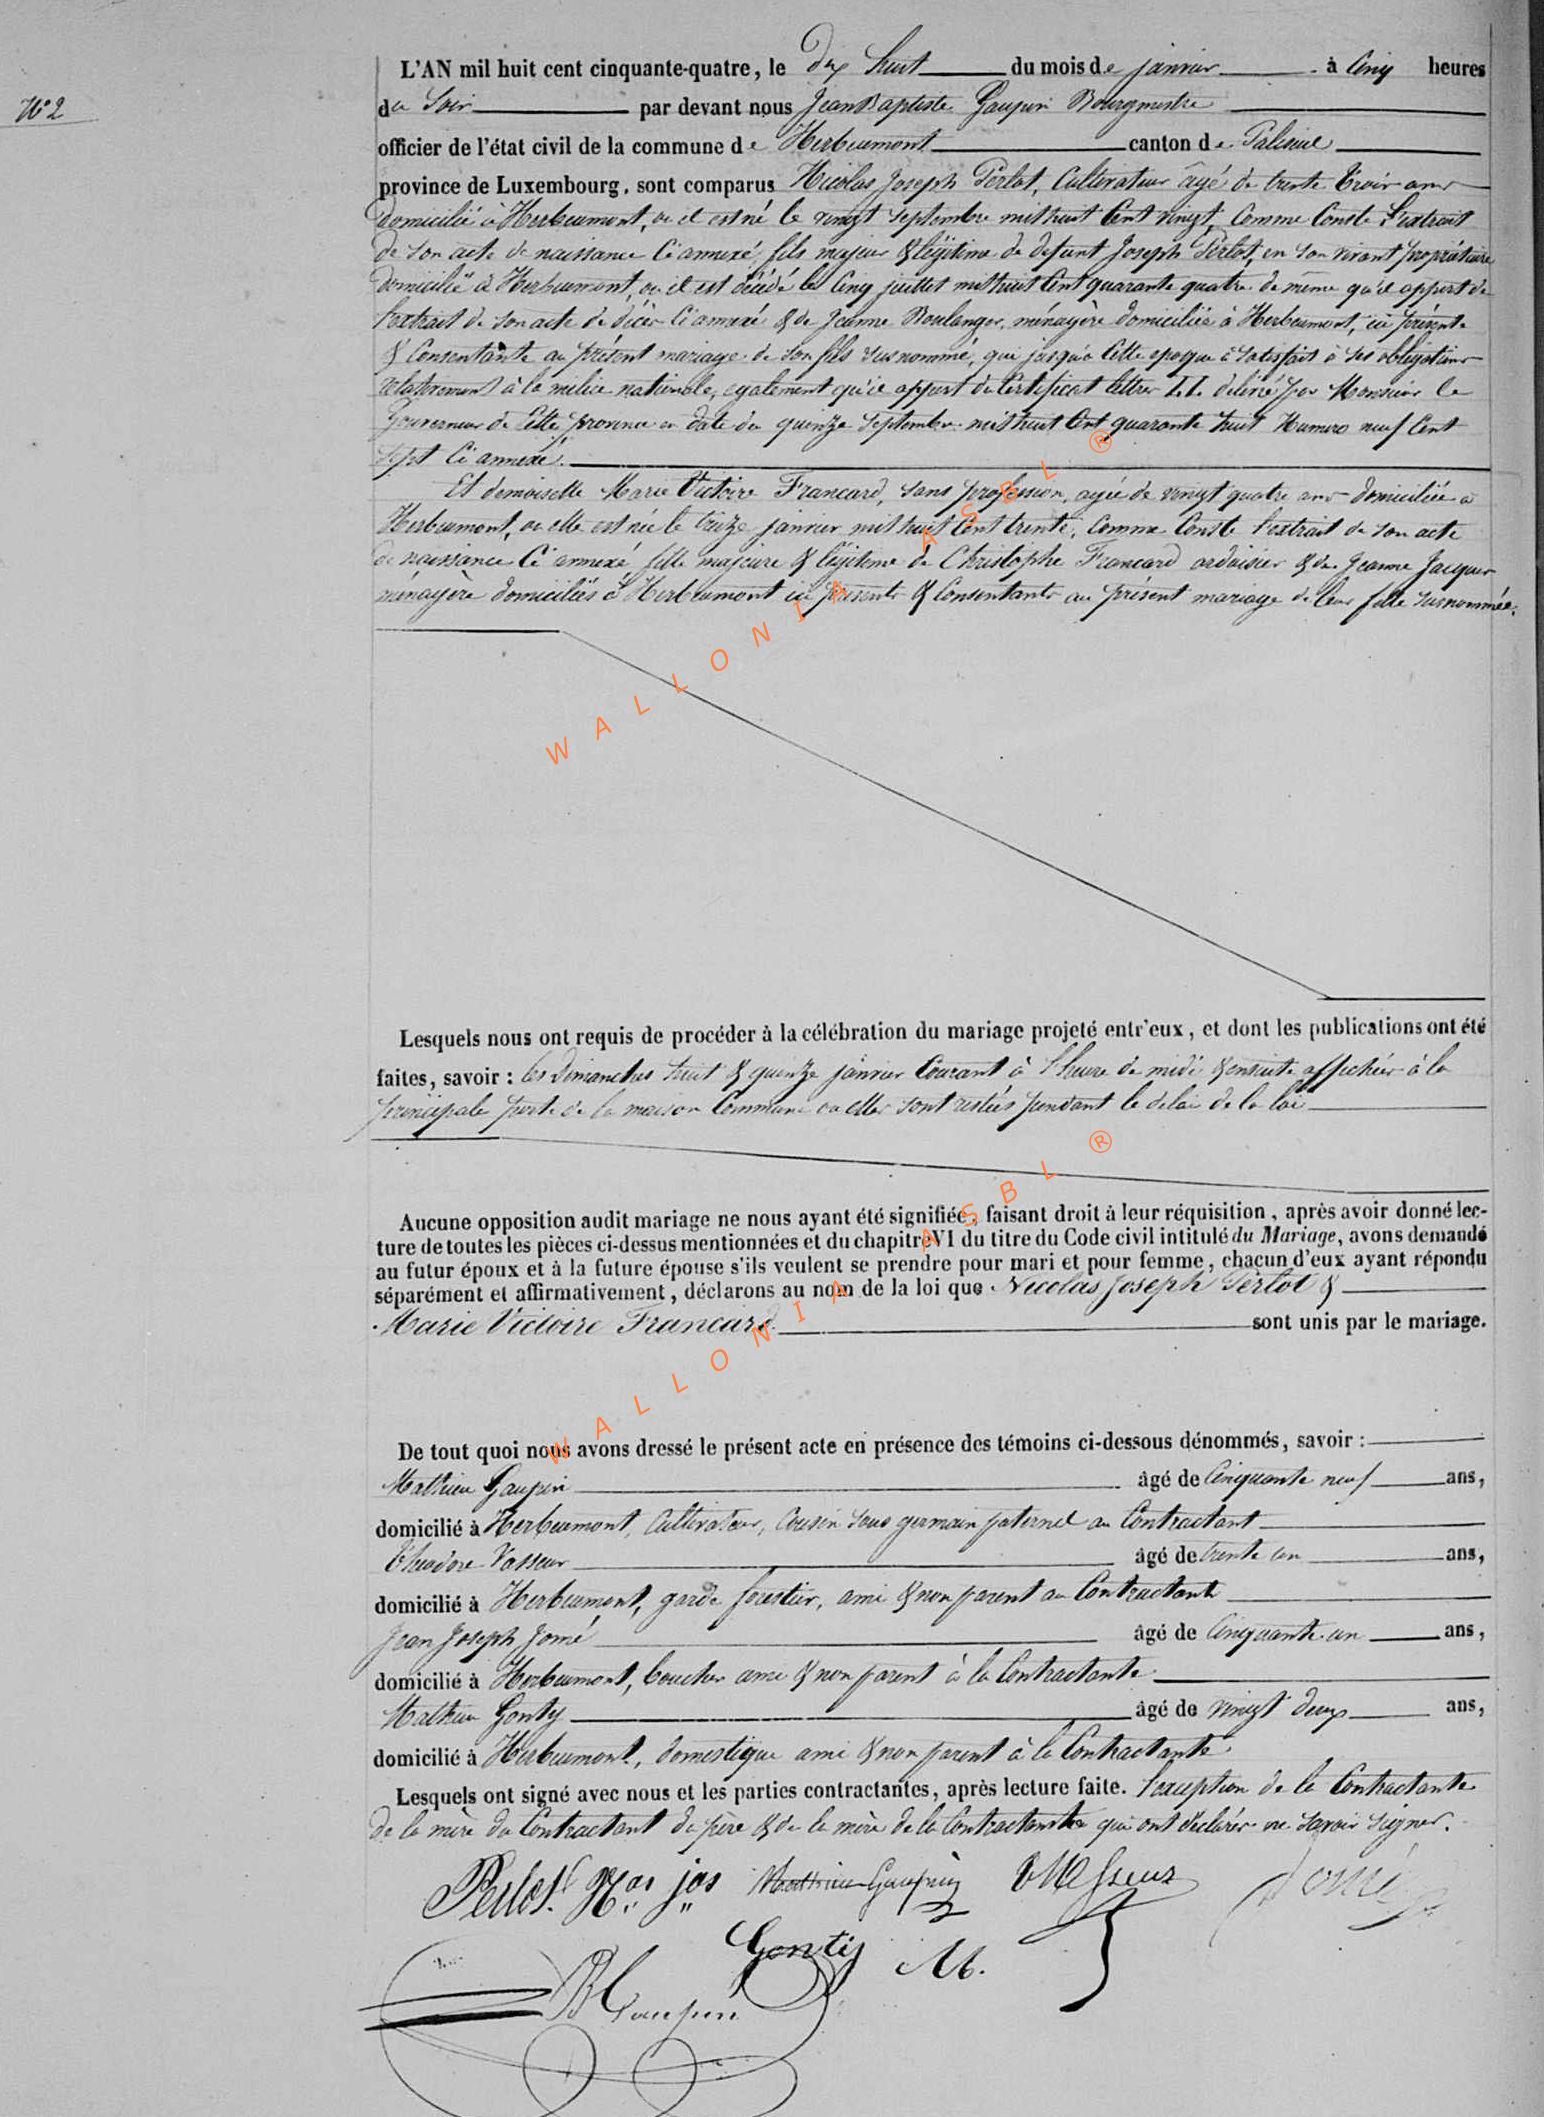 N°2
L'AN mil huit cent cinquante-quatre, le dix huit du mois de janvier à Cinq heures
du Soir par devant nous Jean Baptiste Gaupin Bourgmestre
officier de l'état civil de la commune de Herbeumont canton de Paliseul
province de Luxembourg, sont comparus Nicolas Joseph Perlot, Cultivateur âgé de trente trois ans
domicilié à Herbeumont, ou il est né le vingt septembre mil huit Cent vingt, Comme Conste l'extrait
de son acte de naissance Ci annexé, fils majeur & légitime de defunt Joseph Perlot, en son vivant propriétaire
domicilié à Herbeumont, ou il est décédé le Cinq juillet mil huit Cent quarante quatre de même qu'il appert de
l'extrait de son acte de décès Ci annexé & de Jeanne Boulanger, ménagère domiciliée à Herbeumont, ici présente
& Consentante au présent mariage de son fils susnommé, qui jusqu'à Cette epoque à satisfait à ses obligations
relativement à la milice nationale, egalement qu'il appert du Certificat lettres I.I. delivré par Monsieur le
Gouverneur de Cette province en date du quinze Septembre mil huit Cent quarante huit Numero neuf Cent
sept Ci annexé.
Et demoiselle Marie Victoire Francard, sans profession, agée de vingt quatre ans domiciliée à
Herbeumont, ou elle est née le treize janvier mil huit Cent trente, Comme Conste l'extrait de son acte
de naissance Ci annexé, fille majeure & légitime de Christophe Francard ardoisier & de Jeanne Jacques
ménagère domiciliés à Herbeumont ici présents & Consentants au présent mariage de leur fille susnommée.
Lesquels nous ont requis de procéder à la célébration du mariage projeté entr'eux, et dont les publications ont été
faites, savoir : les Dimanches huit & quinze janvier Courant à l'heure de midi & ensuite affichées à la
principale porte de la maison Commune ou elles sont restées pendant le delai de la loi
Aucune opposition audit mariage ne nous ayant été signifiée, faisant droit à leur réquisition, après avoir donné lec-
ture de toutes les pièces ci-dessus mentionnées et du chapitre VI du titre du Code civil intitulé du Mariage, avons demandé
au futur époux et à la future épouse s'ils veulent se prendre pour mari et pour femme, chacun d'eux ayant répondu
séparément et affirmativement, déclarons au nom de la loi que Nicolas Joseph Perlot &
Marie Victoire Francard sont unis par le mariage.
De tout quoi nous avons dressé le présent acte en présence des témoins ci-dessous dénommés, savoir :
Mathieu Gaupin âgé de Cinquante neuf ans,
domicilié à Herbeumont, Cultivateur, Cousin sous germain paternel au Contractant
Théodore Vasseur âgé de trente un ans,
domicilié à Herbeumont, garde forestier, ami & non parent au Contractant
Jean Joseph Jomé âgé de Cinquante un ans,
domicilié à Herbeumont, boucher ami & non parent à la Contractante
Mathieu Gonty âgé de vingt deux ans,
domicilié à Herbeumont, domestique ami & non parent à la Contractante
Lesquels ont signé avec nous et les parties contractantes, après lecture faite. l'exception de la Contractante
de la mère du Contractant du père & de la mère de la Contractante qui ont déclarés ne savoir signer.
Perlot Nas jos Mathieu Gaupin Vasseur Jomé
Gonty M.
JB Gaupin
WALLONIA ASBL ®
WALLONIA ASBL ®